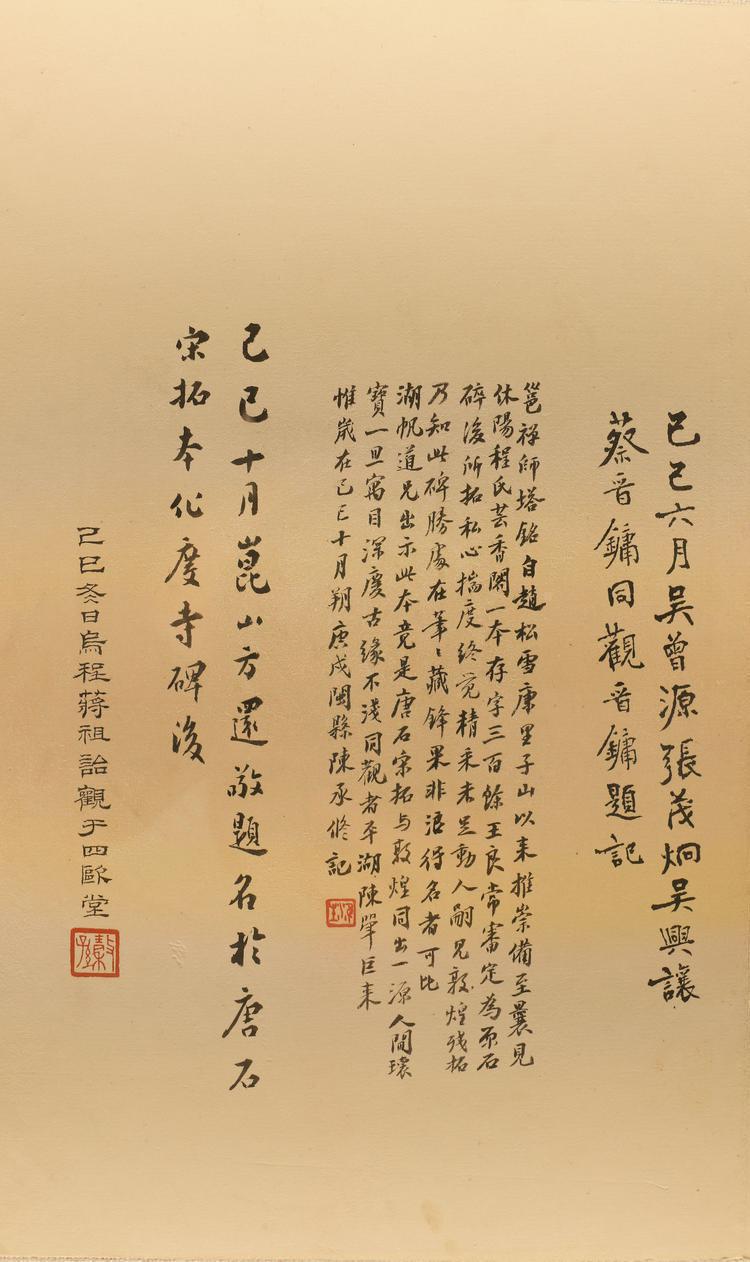 己巳六月吳曾源張茂炯吳興讓
蔡晉鏞同觀晉鏞題記
邕禪師塔銘自趙松雪康里子山以來推崇備至曩見
休陽程氏芸香閣一本存字三百餘王良常審定為原石
碎後所拓私心揣度終覺精采未足動人嗣見敦煌殘拓
乃知此碑勝處在筆筆藏鋒果非浪得名者可比
湖帆道兄出示此本竟是唐石宋拓与敦煌同出一源人間瓌
寶一旦寓目深慶古緣不淺同觀者平湖陳鞏巨来
惟歲在己巳十月朔庚戌閩縣陳承修記
己巳十月崑山方還敬題名於唐石
宋拓本化度寺碑後
己巳冬日烏程蔣祖詒觀于四歐堂